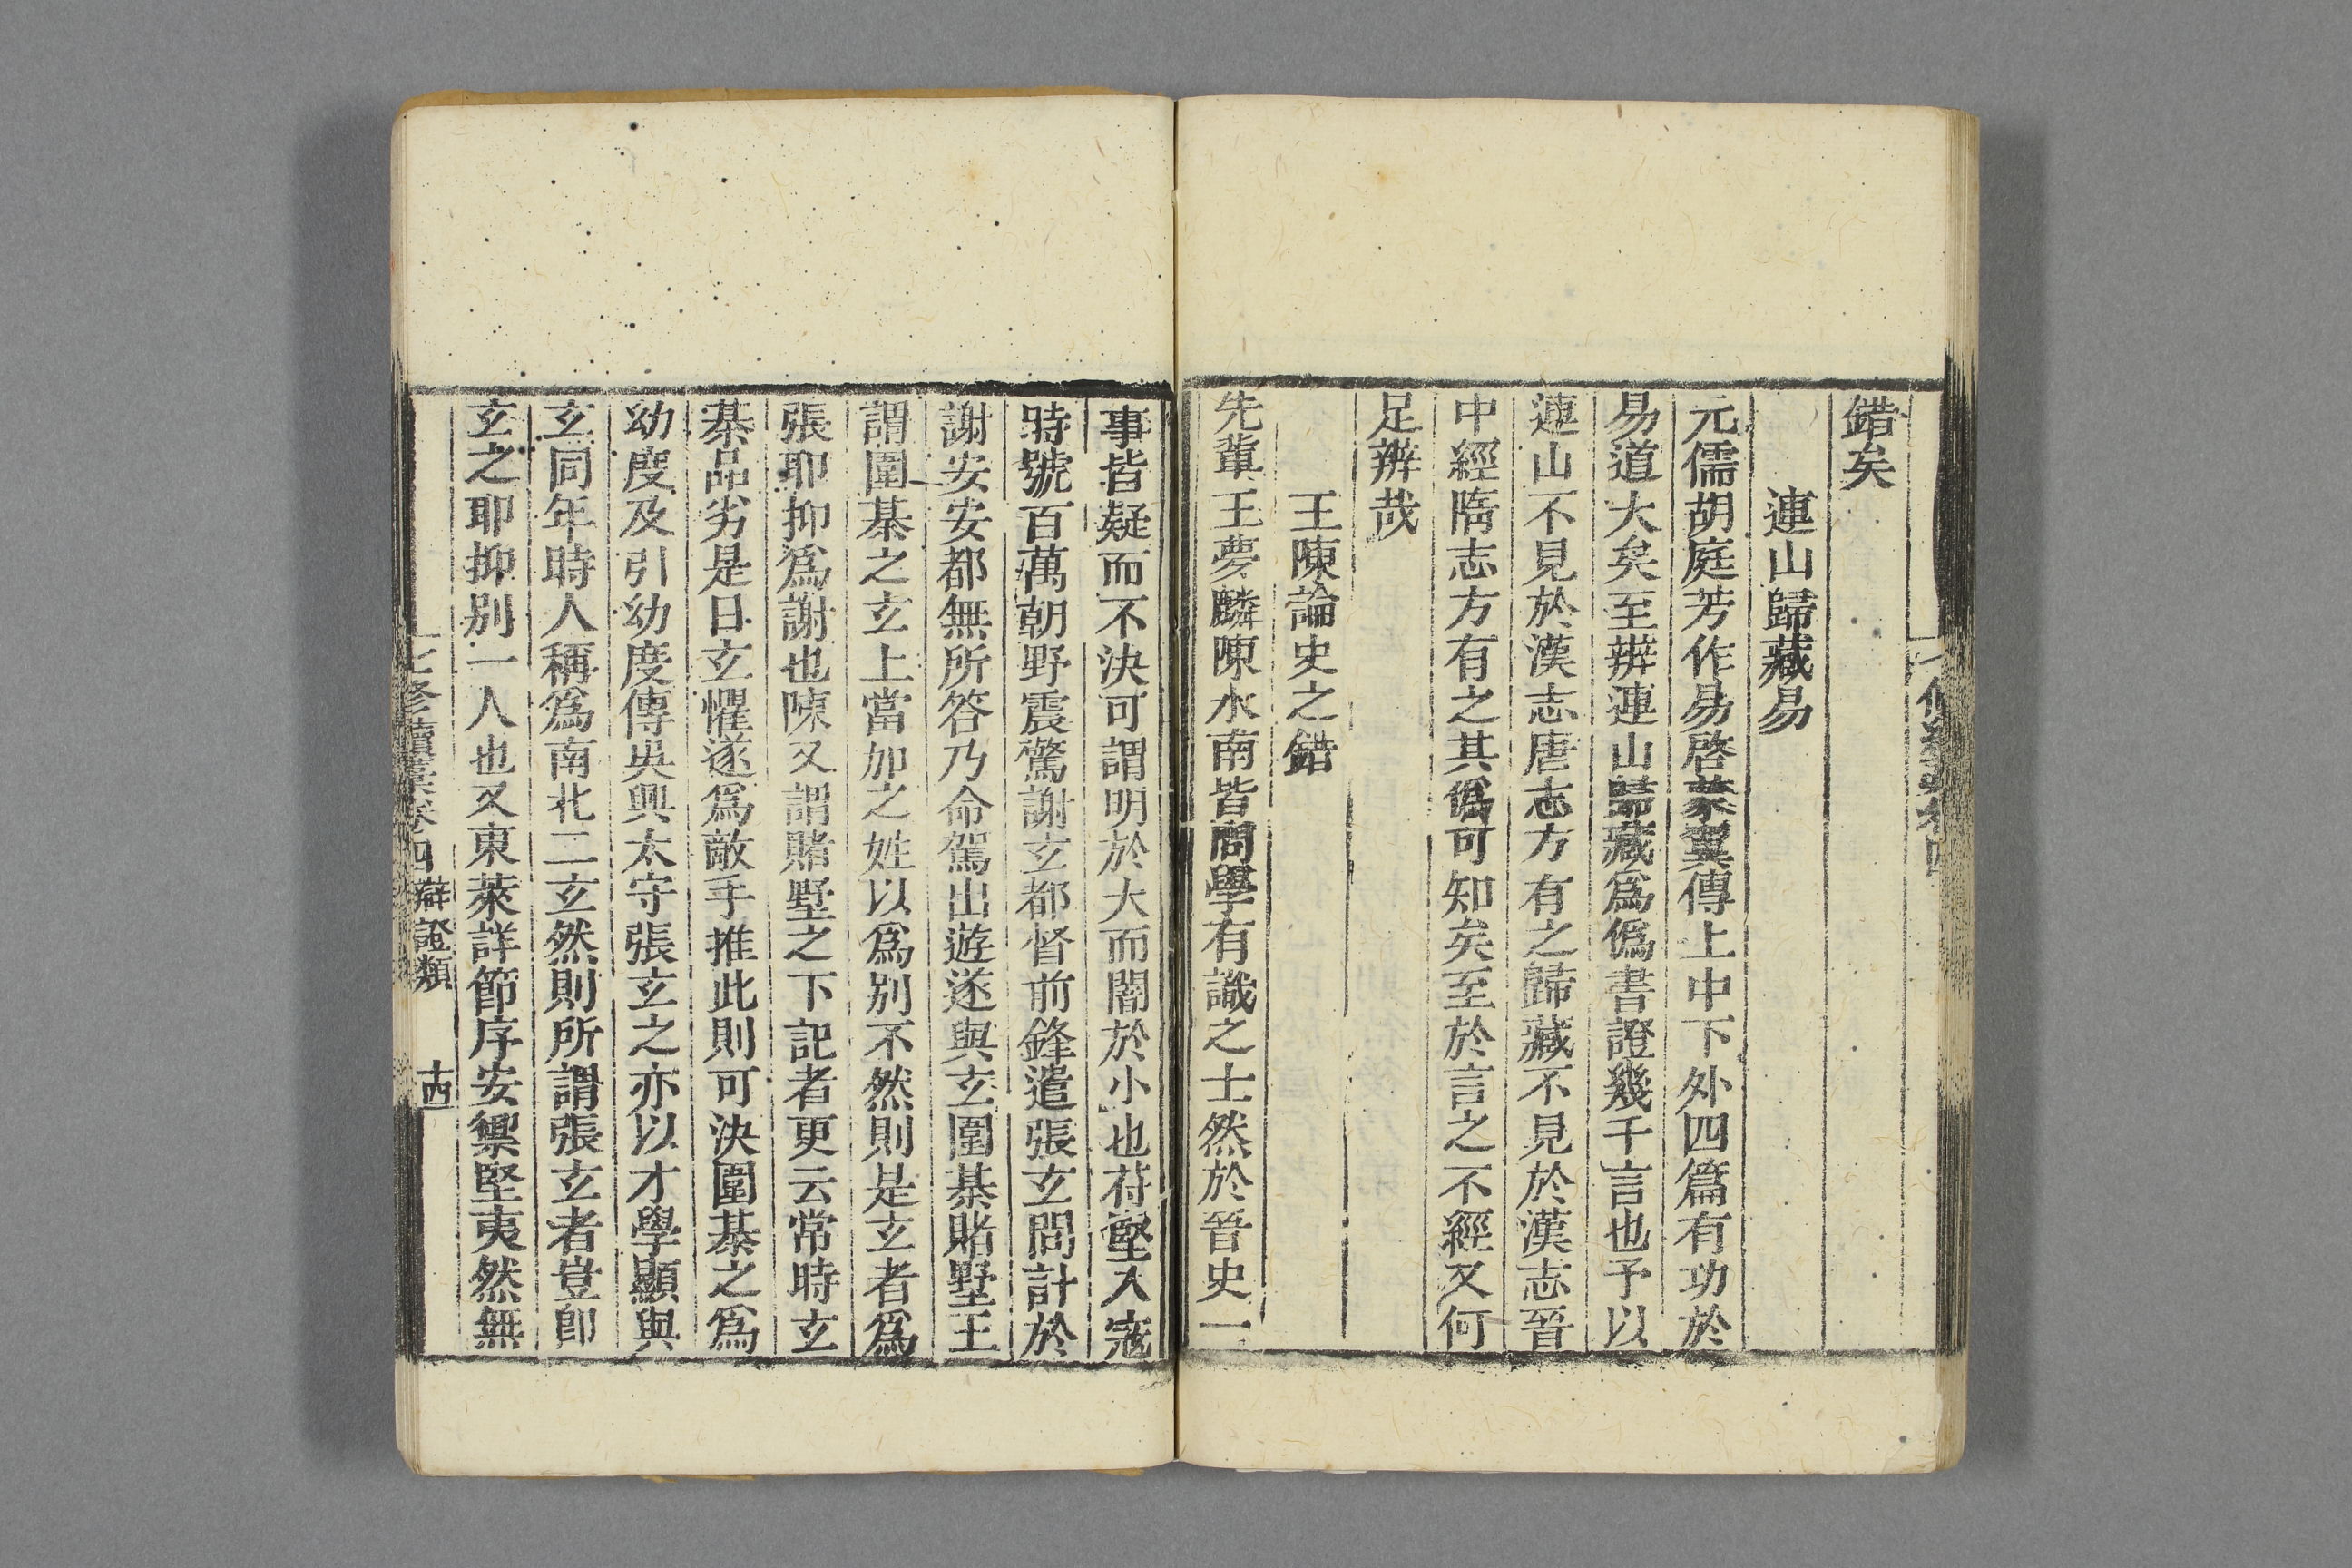 錯矣
連山歸藏易
元儒胡庭芳作易啓蒙翼傳上中下外四篇有功於
易道大矣至辨連山歸藏爲僞書證幾千言也予以
連山不見於漢志唐志方有之歸藏不見於漢志晉
中經隋志方有之其僞可知矣至於言之不經又何
足辨哉
王陳論史之錯
先軰王夢麟陳水南皆問學有識之士然於晉史一
事皆疑而不決可謂明於大而闇於小也苻堅入寇
時號百萬朝野震驚謝玄都督前鋒遣張玄問計於
謝安安都無所答乃命駕出遊遂與玄圍棊賭墅王
謂圍棊之玄上當加之姓以爲别不然則是玄者爲
張耶抑爲謝也陳又謂賭墅之下記者更云常時玄
棊品劣是日玄懼遂爲敵手推此則可決圍棊之爲
幼度及引幼度傳吳興太守張玄之亦以才學顯與
玄同年時人稱爲南北二玄然則所謂張玄者豈卽
玄之耶抑别一人也又東萊詳節序安禦堅夷然無
七修續藁卷四 辯證類 十四